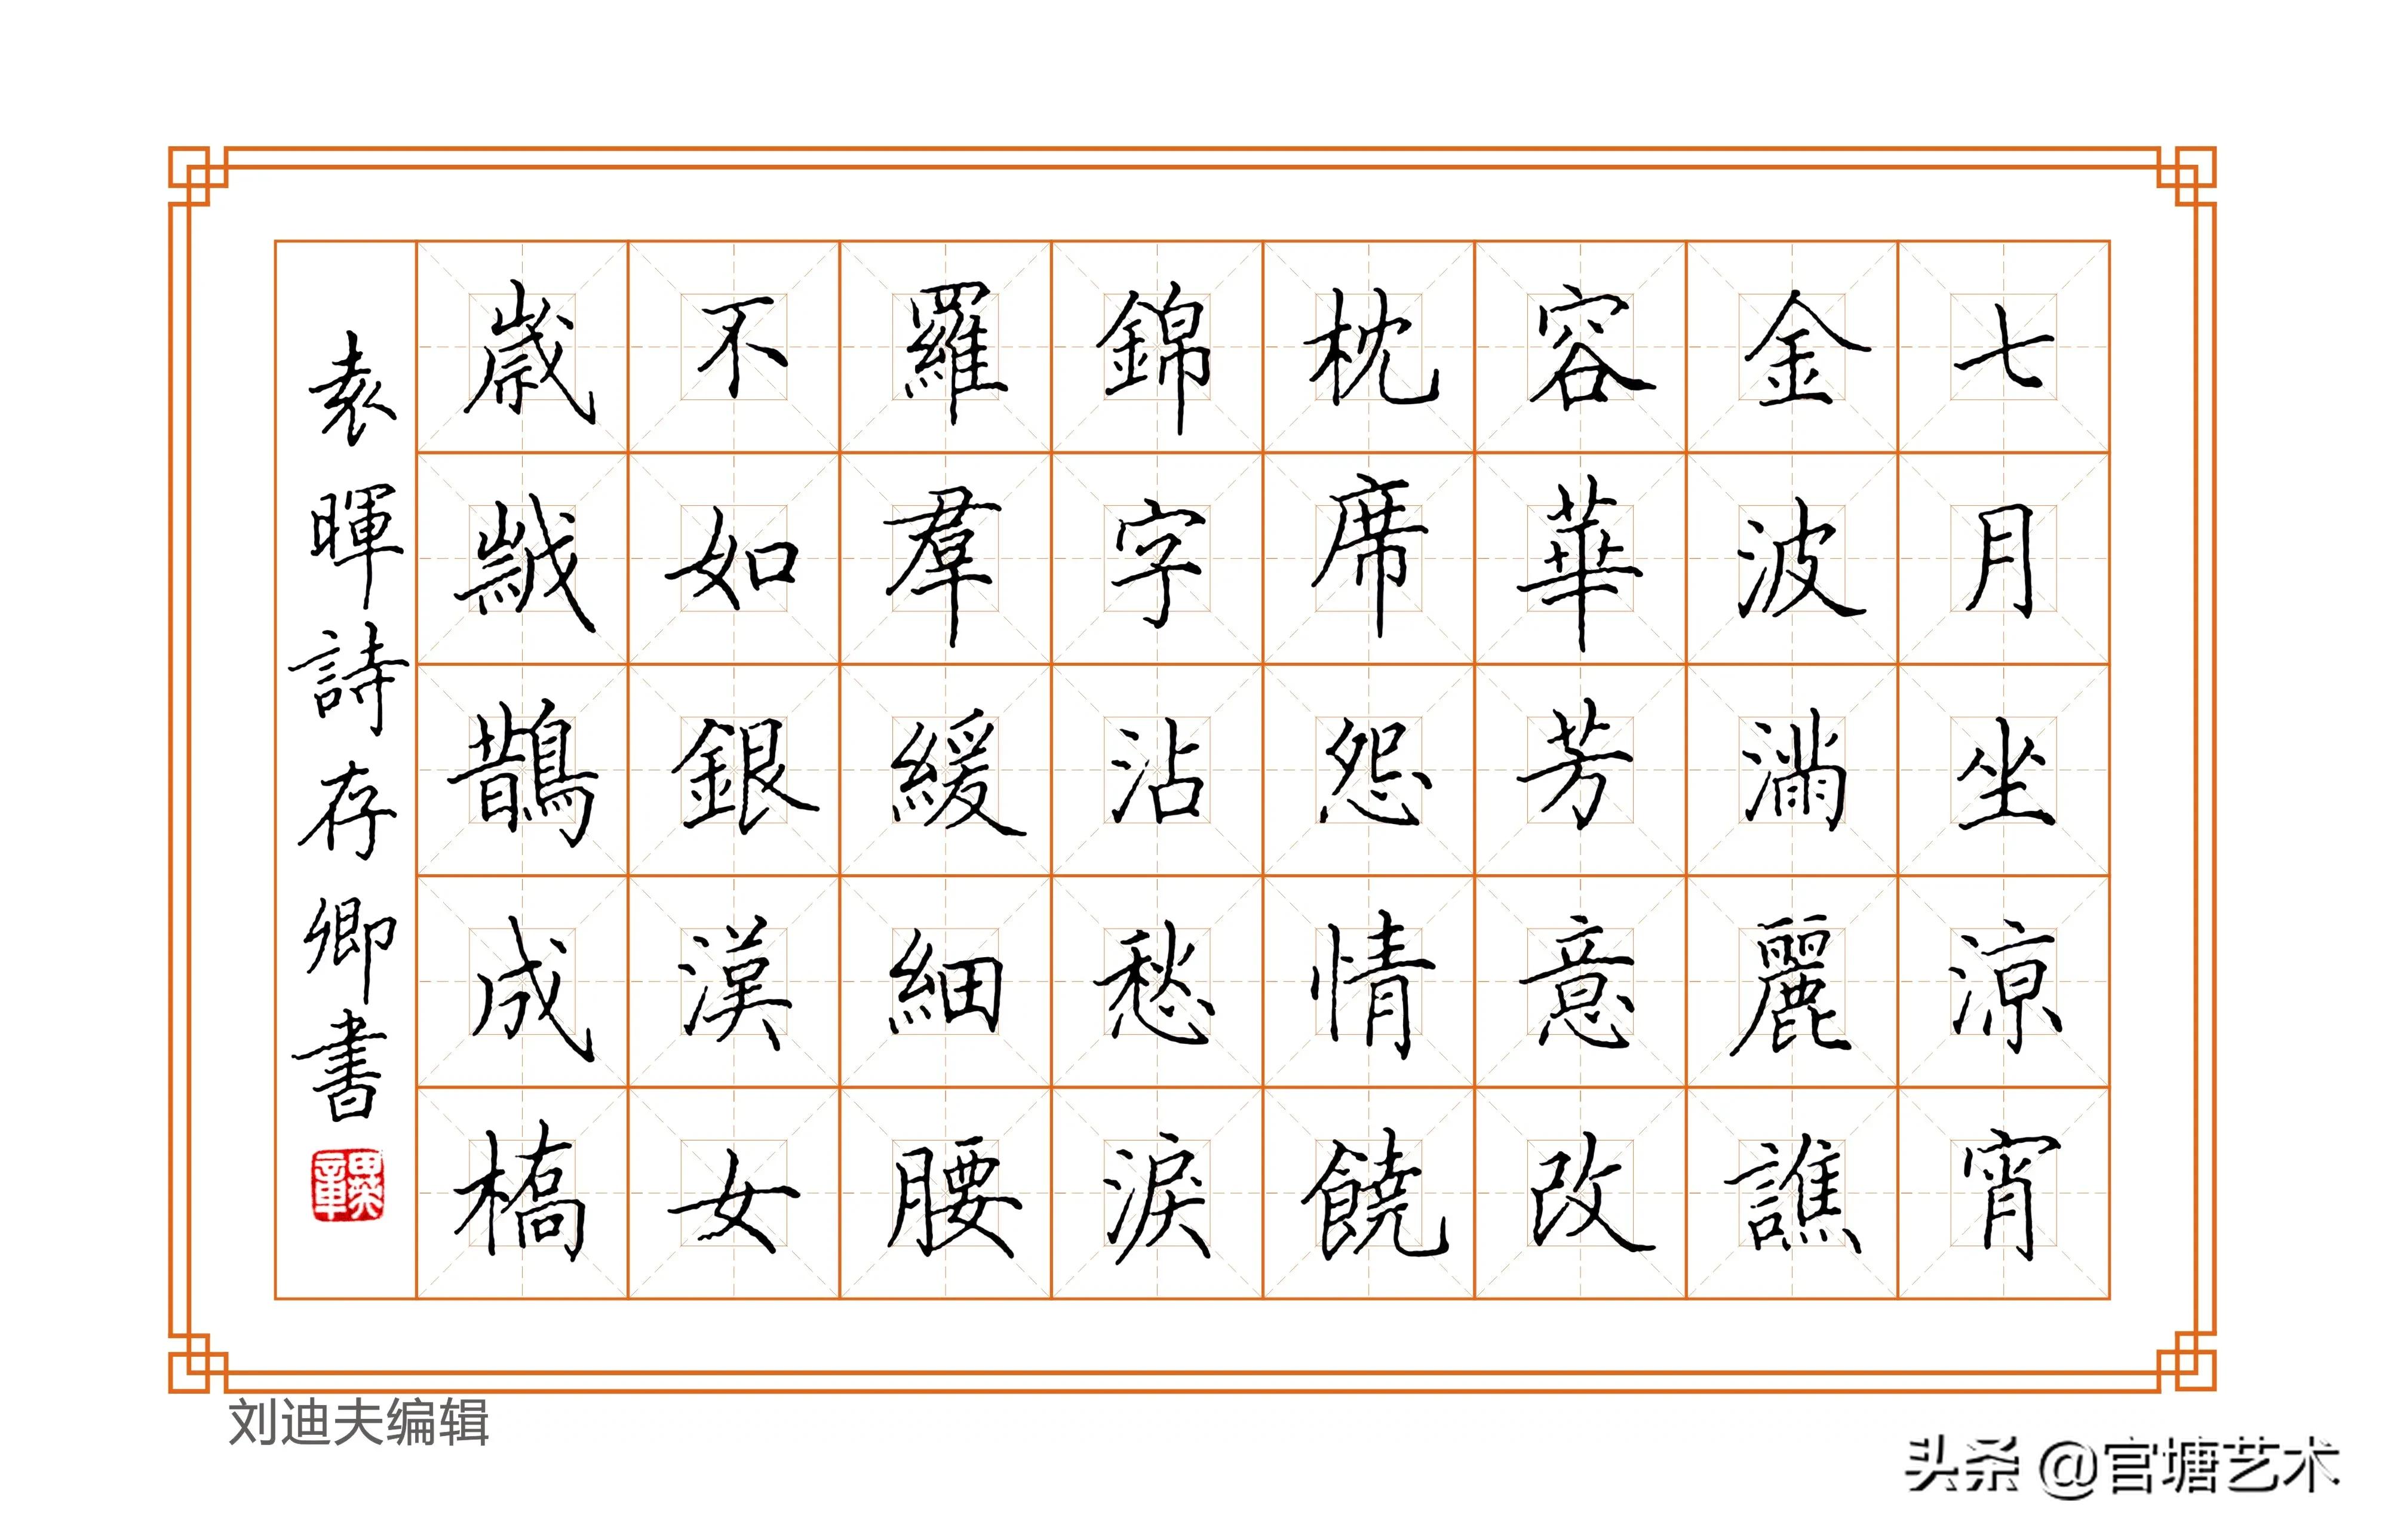 七月坐涼宵
金波滿麗譙
容華芳意改
枕席怨情饒
錦字沾愁淚
羅裠緩細腰
不如銀漢女
歲歲鵲成橋
袁暉詩存卿書
刘迪夫编辑
头条 @官塘艺术